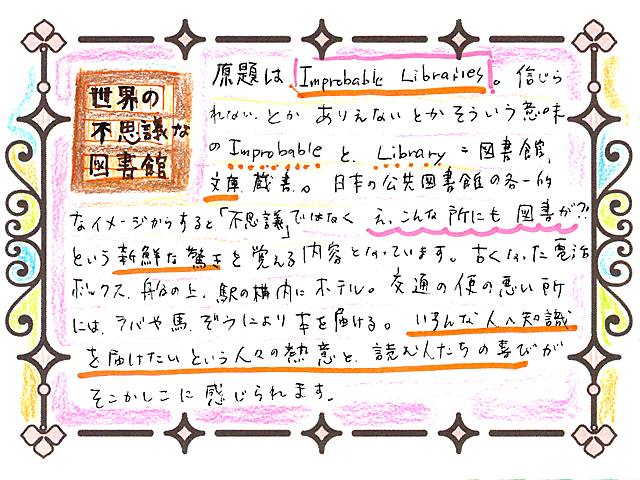 世界の
不思議な
図書館
原題は Improbable Libraries。信じら
れない、とか ありえない とか そういう意味
の Improbable と、Library = 図書館、
文庫、蔵書。日本の公共図書館の画一的
なイメージからすると「不思議」ではなく え、こんな所にも 図書が?!
という 新鮮な驚きを覚える 内容となっています。古くなった電話
ボックス、船の上、駅の構内にホテル。交通の便の悪い所
には、ラバや馬、ぞうにより本を届ける。いろんな人へ知識
を届けたいという人々の熱意と、読む人たちの喜びが
そこかしこに感じられます。